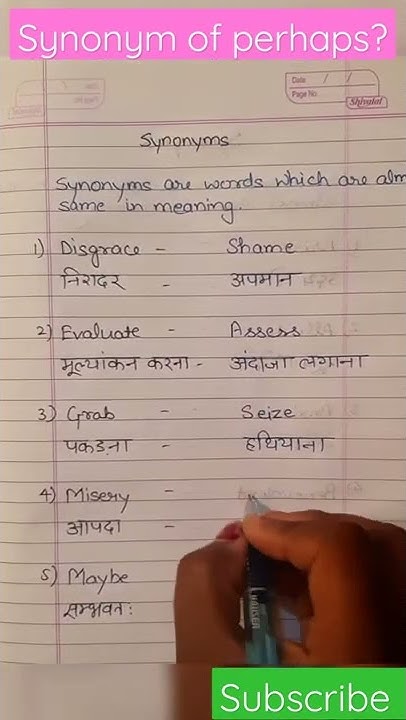 Synonym of perhaps?
Date / /
Page No.
Shivalal
Synonyms
Synonyms are words which are alm
same in meaning.
1) Disgrace - Shame
निरादर - अपमान
2) Evaluate - Assess
मूल्यांकन करना - अंदाजा लगाना
3) Grab - Seize
पकड़ना - हथियाना
4) Misery -
आपदा -
5) Maybe
सम्भवतः
HAUSER
Subscribe